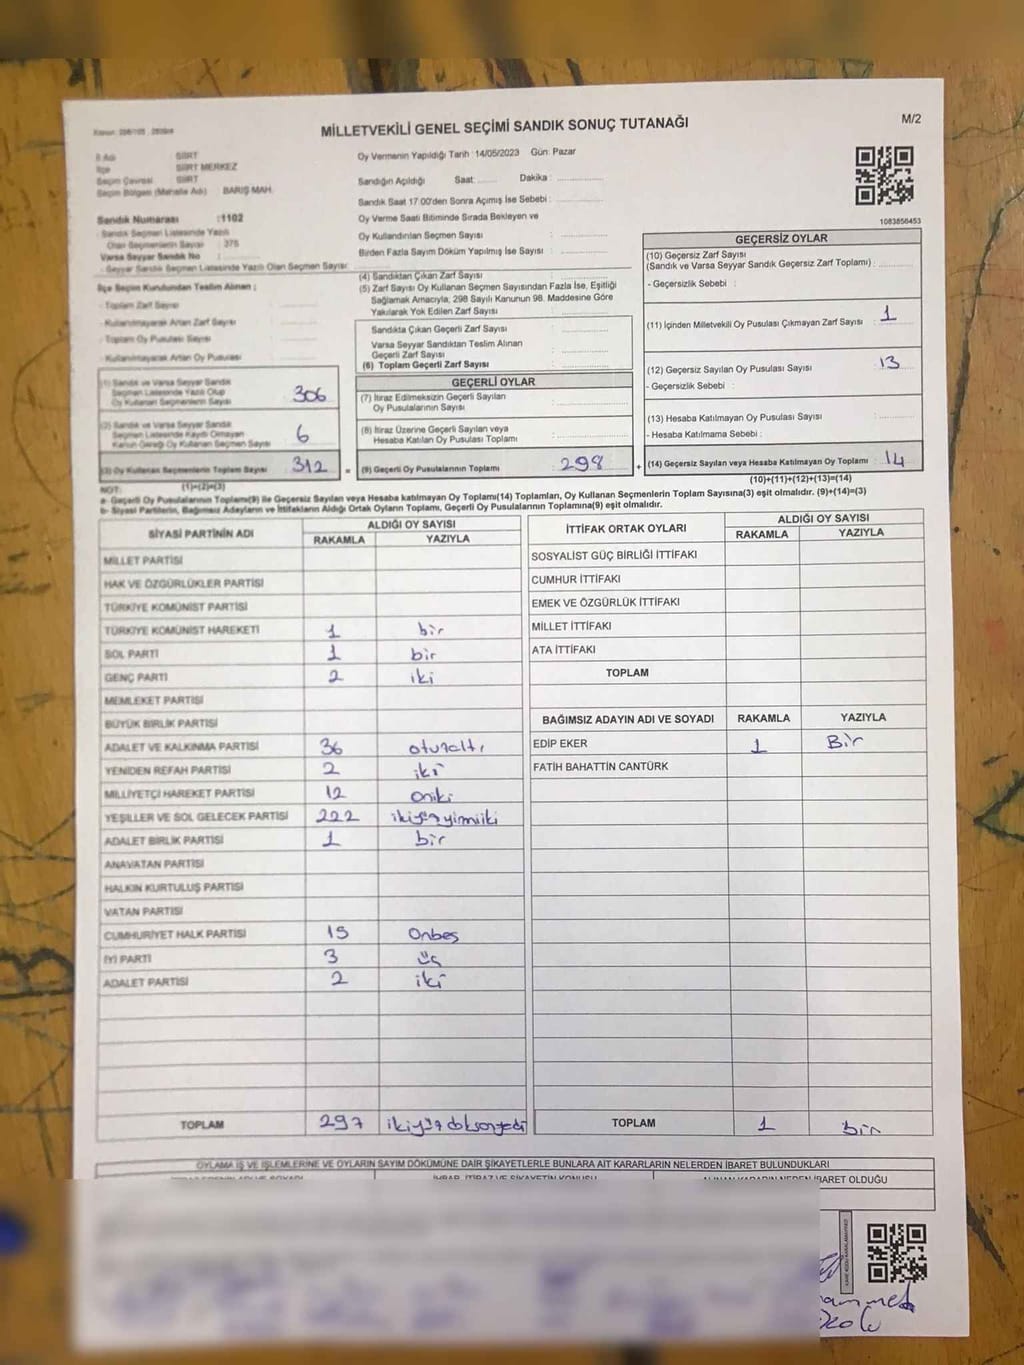 MİLLETVEKİLİ GENEL SEÇİMİ SANDIK SONUÇ TUTANAĞI
M/2
İl Adı : SİİRT
İlçe : SİİRT MERKEZ
Seçim Çevresi : SİİRT
Seçim Bölgesi (Mahalle Adı) : BARIŞ MAH.
Sandık Numarası : 1102
Sandık Seçmen Listesinde Yazılı
Olan Seçmenlerin Sayısı : 375
Varsa Seyyar Sandık No :
Seyyar Sandık Seçmen Listesinde Yazılı Olan Seçmen Sayısı :
İlçe Seçim Kurulundan Teslim Alınan ;
- Toplam Zarf Sayısı
- Kullanılmayarak Artan Zarf Sayısı
- Toplam Oy Pusulası Sayısı
- Kullanılmayarak Artan Oy Pusulası
(1) Sandık ve Varsa Seyyar Sandık
Seçmen Listesinde Yazılı Olup
Oy Kullanan Seçmenlerin Sayısı 306
(2) Sandık ve Varsa Seyyar Sandık
Seçmen Listesinde Kaydı Olmayan
Kanun Gereği Oy Kullanan Seçmen Sayısı 6
(3) Oy Kullanan Seçmenlerin Toplam Sayısı 312
(1)+(2)=(3)
Oy Vermenin Yapıldığı Tarih :14/05/2023 Gün: Pazar
Sandığın Açıldığı Saat: Dakika :
Sandık Saat 17.00'den Sonra Açımış İse Sebebi :
Oy Verme Saati Bitiminde Sırada Bekleyen ve
Oy Kullandırılan Seçmen Sayısı :
Birden Fazla Sayım Döküm Yapılmış İse Sayısı :
(4) Sandıktan Çıkan Zarf Sayısı :
(5) Zarf Sayısı Oy Kullanan Seçmen Sayısından Fazla İse, Eşitliği
Sağlamak Amacıyla, 298 Sayılı Kanunun 98. Maddesine Göre
Yakılarak Yok Edilen Zarf Sayısı :
Sandıkta Çıkan Geçerli Zarf Sayısı :
Varsa Seyyar Sandıktan Teslim Alınan
Geçerli Zarf Sayısı :
(6) Toplam Geçerli Zarf Sayısı :
GEÇERLİ OYLAR
(7) İtiraz Edilmeksizin Geçerli Sayılan
Oy Pusulalarının Sayısı :
(8) İtiraz Üzerine Geçerli Sayılan veya
Hesaba Katılan Oy Pusulası Toplamı :
= (9) Geçerli Oy Pusulalarının Toplamı : 298
1083856453
GEÇERSİZ OYLAR
(10) Geçersiz Zarf Sayısı
(Sandık ve Varsa Seyyar Sandık Geçersiz Zarf Toplamı) :
- Geçersizlik Sebebi :
(11) İçinden Milletvekili Oy Pusulası Çıkmayan Zarf Sayısı : 1
(12) Geçersiz Sayılan Oy Pusulası Sayısı : 13
- Geçersizlik Sebebi :
(13) Hesaba Katılmayan Oy Pusulası Sayısı :
- Hesaba Katılmama Sebebi :
+ (14) Geçersiz Sayılan veya Hesaba Katılmayan Oy Toplamı : 14
(10)+(11)+(12)+(13)=(14)
NOT:
a- Geçerli Oy Pusulalarının Toplamı(9) ile Geçersiz Sayılan veya Hesaba katılmayan Oy Toplamı(14) Toplamları, Oy Kullanan Seçmenlerin Toplam Sayısına(3) eşit olmalıdır. (9)+(14)=(3)
b- Siyasi Partilerin, Bağımsız Adayların ve İttifakların Aldığı Ortak Oyların Toplamı, Geçerli Oy Pusulalarının Toplamına(9) eşit olmalıdır.
SİYASİ PARTİNİN ADI ALDIĞI OY SAYISI
RAKAMLA YAZIYLA
MİLLET PARTİSİ
HAK VE ÖZGÜRLÜKLER PARTİSİ
TÜRKİYE KOMÜNİST PARTİSİ
TÜRKİYE KOMÜNİST HAREKETİ 1 bir
SOL PARTİ 1 bir
GENÇ PARTİ 2 iki
MEMLEKET PARTİSİ
BÜYÜK BİRLİK PARTİSİ
ADALET VE KALKINMA PARTİSİ 36 otuzaltı
YENİDEN REFAH PARTİSİ 2 iki
MİLLİYETÇİ HAREKET PARTİSİ 12 oniki
YEŞİLLER VE SOL GELECEK PARTİSİ 222 ikiyüzyirmiiki
ADALET BİRLİK PARTİSİ 1 bir
ANAVATAN PARTİSİ
HALKIN KURTULUŞ PARTİSİ
VATAN PARTİSİ
CUMHURİYET HALK PARTİSİ 15 Onbeş
İYİ PARTİ 3 üç
ADALET PARTİSİ 2 iki
TOPLAM 297 ikiyüzdoksanyedi
İTTİFAK ORTAK OYLARI ALDIĞI OY SAYISI
RAKAMLA YAZIYLA
SOSYALİST GÜÇ BİRLİĞİ İTTİFAKI
CUMHUR İTTİFAKI
EMEK VE ÖZGÜRLÜK İTTİFAKI
MİLLET İTTİFAKI
ATA İTTİFAKI
TOPLAM
BAĞIMSIZ ADAYIN ADI VE SOYADI RAKAMLA YAZIYLA
EDİP EKER 1 Bir
FATİH BAHATTİN CANTÜRK
TOPLAM 1 bir
OYLAMA İŞ VE İŞLEMLERİNE VE OYLARIN SAYIM DÖKÜMÜNE DAİR ŞİKAYETLERLE BUNLARA AİT KARARLARIN NELERDEN İBARET BULUNDUKLARI
İHBAR, İTİRAZ VE ŞİKAYETİN KONUSU
İBARET OLDUĞU